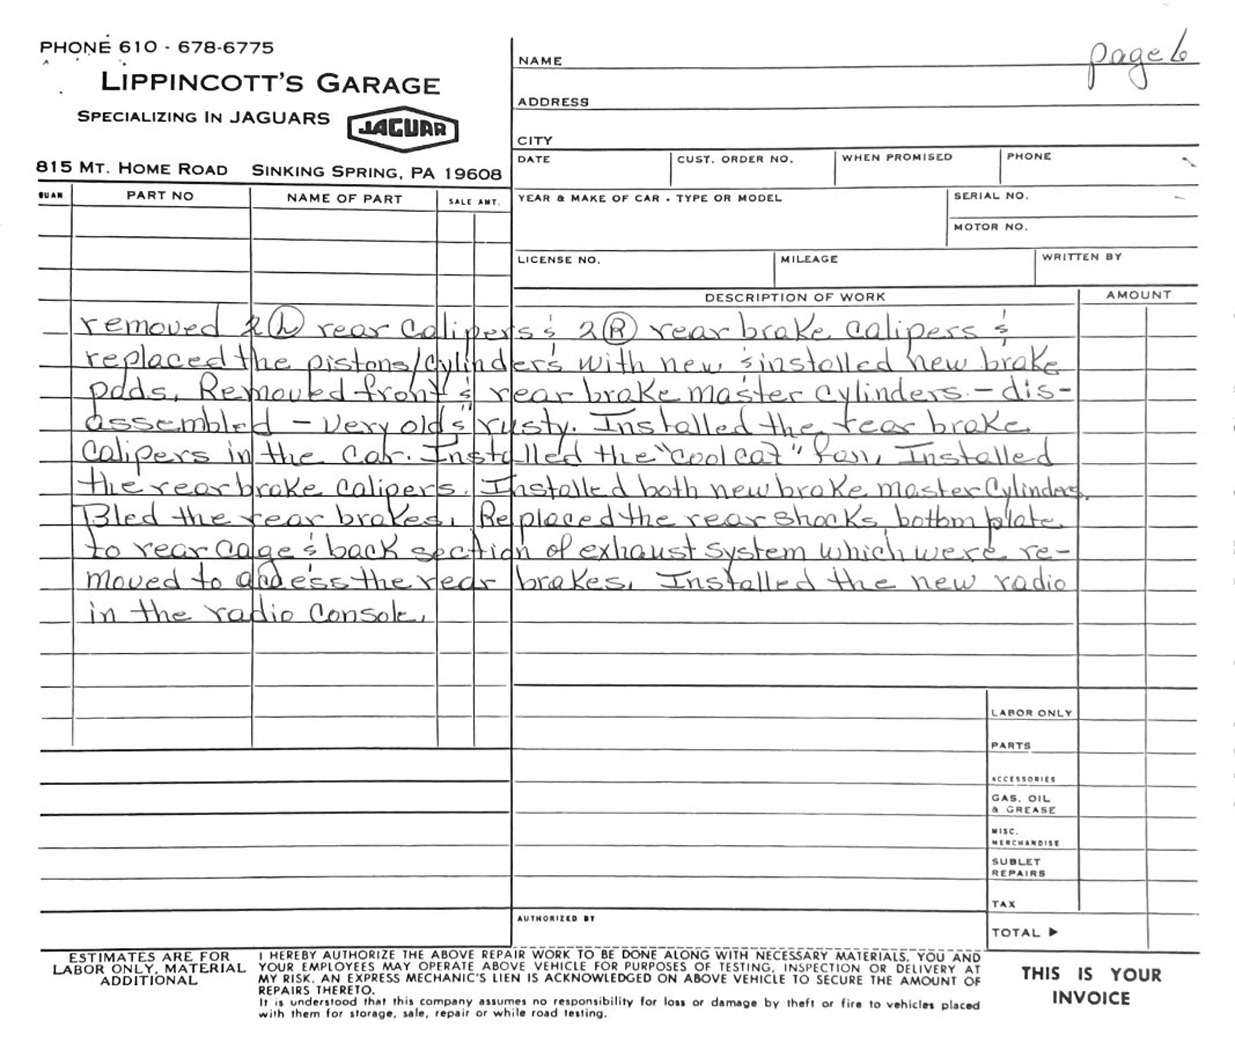 PHONE 610 - 678-6775
LIPPINCOTT'S GARAGE
SPECIALIZING IN JAGUARS
JAGUAR
815 MT. HOME ROAD SINKING SPRING, PA 19608
page 6
NAME
ADDRESS
CITY
DATE CUST. ORDER NO. WHEN PROMISED PHONE
QUAN PART NO NAME OF PART SALE AMT.
YEAR & MAKE OF CAR - TYPE OR MODEL SERIAL NO.
MOTOR NO.
LICENSE NO. MILEAGE WRITTEN BY
DESCRIPTION OF WORK AMOUNT
removed 2 L rear calipers & 2 R rear brake calipers &
replaced the pistons/cylinders with new & installed new brake
pads. Removed front & rear brake master cylinders - dis-
assembled - very old & rusty. Installed the rear brake
calipers in the car. Installed the "cool cat" fan, Installed
the rear brake calipers. Installed both new brake master cylinders.
Bled the rear brakes. Replaced the rear shocks, bottom plate
to rear cage & back section of exhaust system which were re-
moved to access the rear brakes. Installed the new radio
in the radio console.
LABOR ONLY
PARTS
ACCESSORIES
GAS, OIL
& GREASE
MISC.
MERCHANDISE
SUBLET
REPAIRS
TAX
AUTHORIZED BY
TOTAL ▶
ESTIMATES ARE FOR
LABOR ONLY, MATERIAL
ADDITIONAL
I HEREBY AUTHORIZE THE ABOVE REPAIR WORK TO BE DONE ALONG WITH NECESSARY MATERIALS. YOU AND
YOUR EMPLOYEES MAY OPERATE ABOVE VEHICLE FOR PURPOSES OF TESTING, INSPECTION OR DELIVERY AT
MY RISK. AN EXPRESS MECHANIC'S LIEN IS ACKNOWLEDGED ON ABOVE VEHICLE TO SECURE THE AMOUNT OF
REPAIRS THERETO.
It is understood that this company assumes no responsibility for loss or damage by theft or fire to vehicles placed
with them for storage, sale, repair or while road testing.
THIS IS YOUR
INVOICE